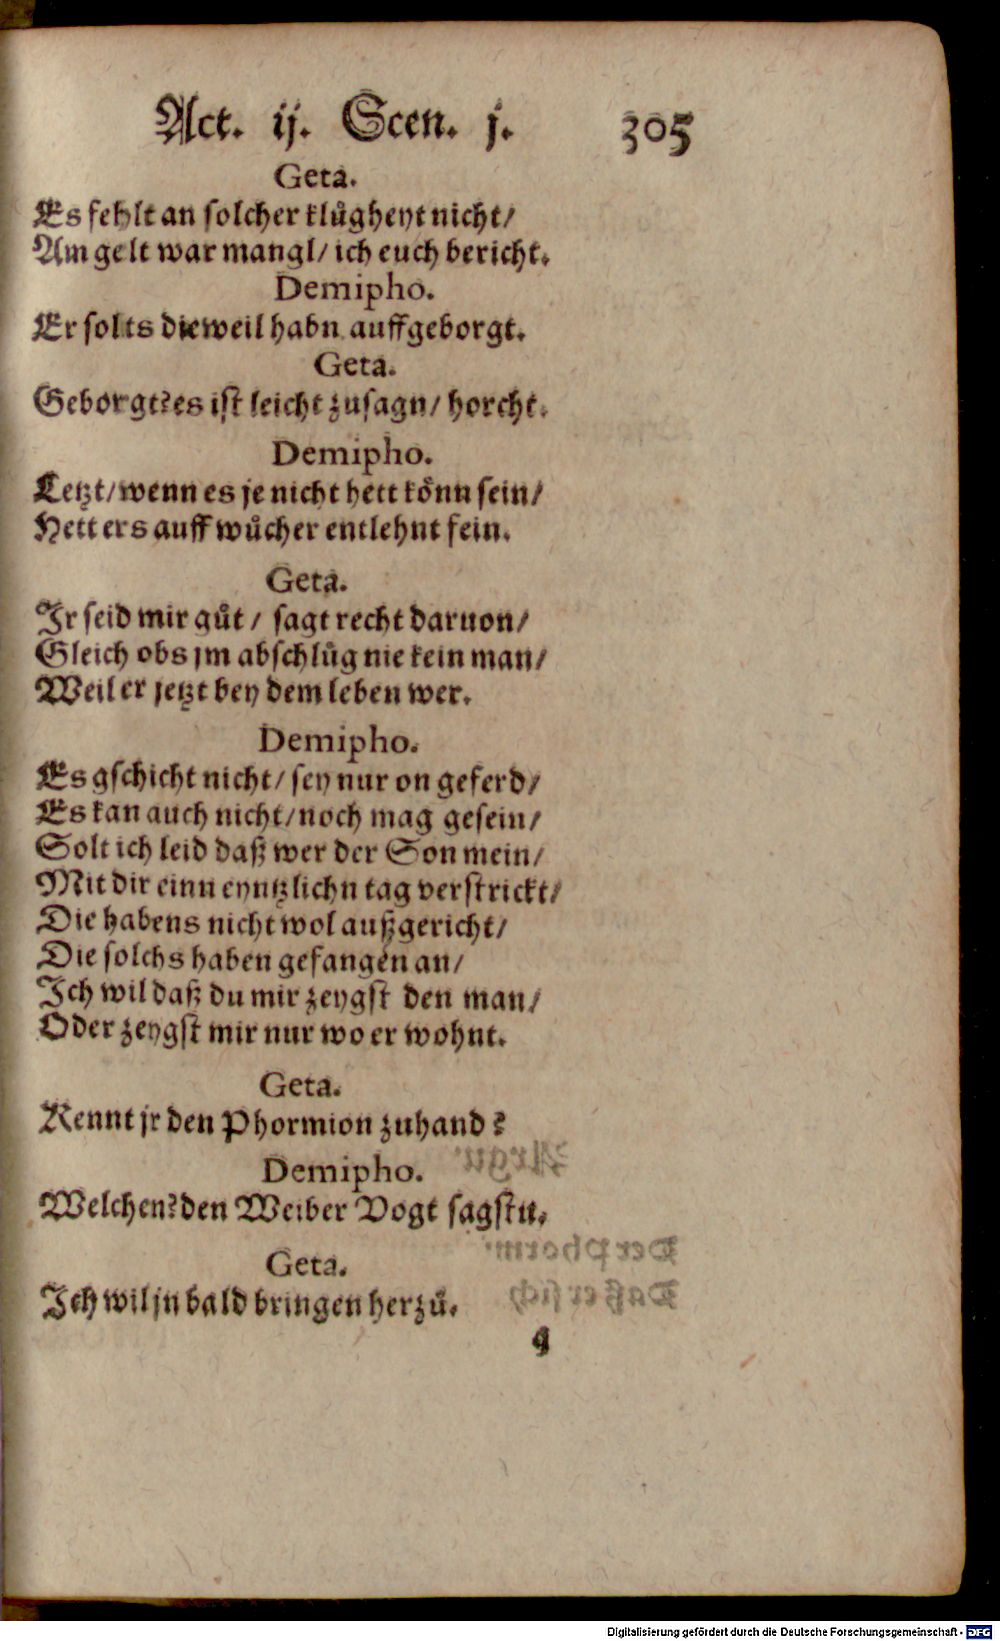 Act. ij. Scen. j. 305
Geta.
Es fehlt an solcher klůgheyt nicht/
Am gelt war mangl/ ich euch bericht.
Demipho.
Er solts dieweil habn auffgeborgt.
Geta.
Geborgt? es ist leicht zusagn/ horcht.
Demipho.
Letzt/ wenn es je nicht hett könn sein/
Hett ers auff wůcher entlehnt fein.
Geta.
Jr seid mir gůt/ sagt recht daruon/
Gleich obs jm abschlůg nie kein man/
Weil er jetzt bey dem leben wer.
Demipho.
Es gschicht nicht/ sey nur on geferd/
Es kan auch nicht/ noch mag gesein/
Solt ich leid daß wer der Son mein/
Mit dir einn eyntzlichn tag verstrickt/
Die habens nicht wol außgericht/
Die solchs haben gefangen an/
Ich wil daß du mir zeygst den man/
Oder zeygst mir nur wo er wohnt.
Geta.
Kennt jr den Phormion zuhand?
Demipho.
Welchen? den Weiber Vogt sagstu.
Geta.
Ich wil jn bald bringen herzů.
q
Digitalisierung gefördert durch die Deutsche Forschungsgemeinschaft - DFG